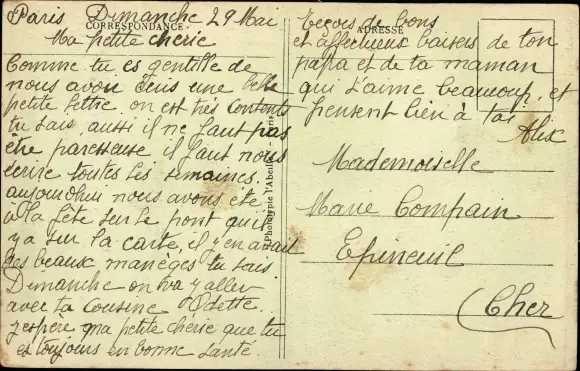 Paris Dimanche 29 Mai
CORRESPONDANCE
Ma petite chérie
Comme tu es gentille de
nous avoir écris une belle
petite lettre on est très contents
tu sais, aussi il ne faut pas
être paresseuse il faut nous
écrire toutes les semaines.
aujourdhui nous avons été
à la fête sur le pont quil
y a sur la carte, il y en avait
des beaux manèges tu sais.
Dimanche on ira y aller
avec ta cousine Odette
j'espère ma petite chérie que tu
es toujours en bonne santé.
Phototypie l'Abeille - Paris
ADRESSE
reçois de bons
et affectueux baisers de ton
papa et de ta maman
qui t'aime beaucoup, et
pensent bien à toi
Alix
Mademoiselle
Marie Compain
Epineuil
Cher